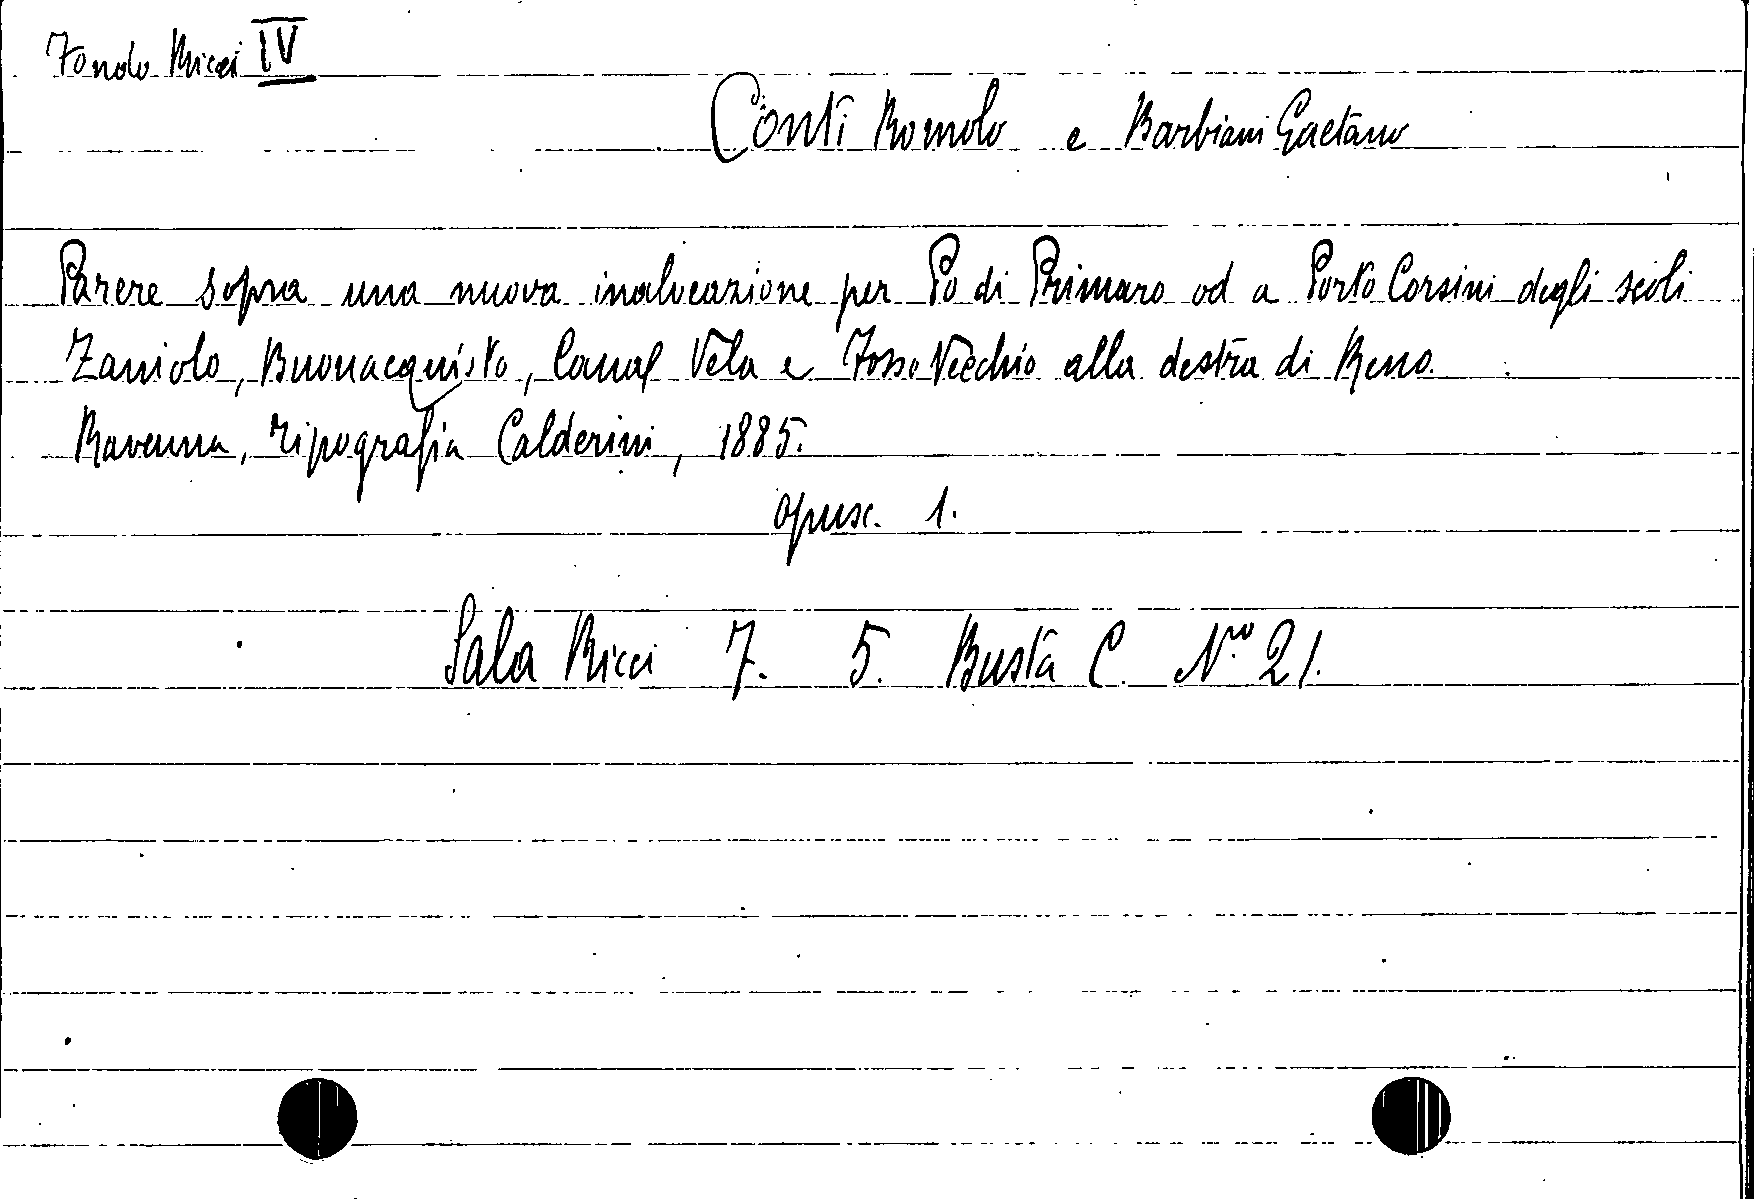 Fondo Ricci IV
Conti Romolo e Barbiani Gaetano
Parere sopra una nuova inalveazione per Po di Primaro od a Porto Corsini degli scoli
Zaniolo, Buonacquisto, Canal Vela e Fosso Vecchio alla destra di Reno.
Ravenna, Tipografia Calderini, 1885.
opusc. 1.
Sala Ricci 7. 5. Busta C. N.ro 21.